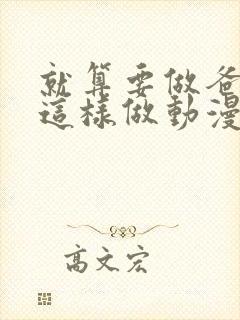 就算要做爸
這樣做動漫
高文宏